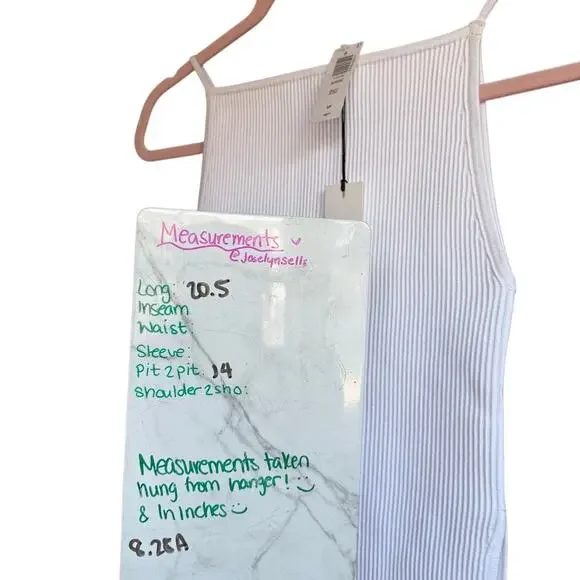 Measurements
@joselynsells
Long: 20.5
Inseam
Waist:
Sleeve:
Pit 2 pit: 14
Shoulder2sho:
Measurements taken
hung from hanger!
& In Inches
8.28A